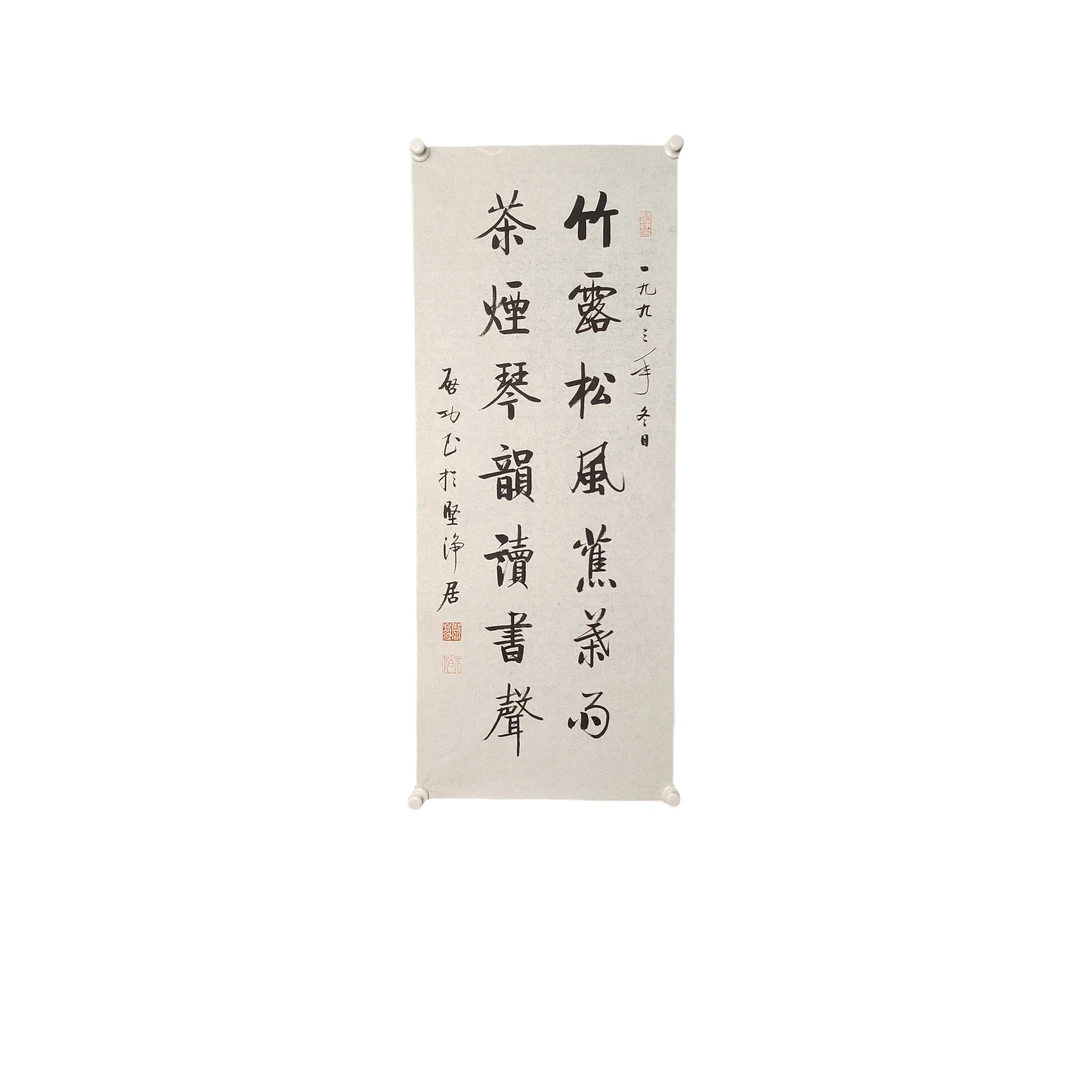 一九九三年冬日
竹露松風蕉葉雨
茶煙琴韻讀書聲
啟功書於堅淨居